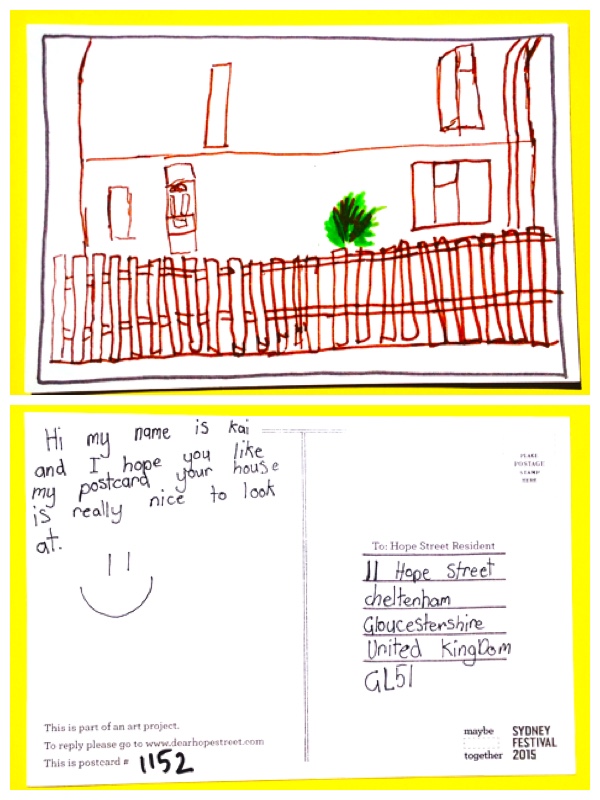 Hi my name is kai
and I hope you like
my postcard your house
is really nice to look
at.
PLACE
POSTAGE
STAMP
HERE
To: Hope Street Resident
11 Hope Street
cheltenham
Gloucestershire
United KingDom
GL51
This is part of an art project.
To reply please go to www.dearhopestreet.com
This is postcard # 1152
maybe
together
SYDNEY
FESTIVAL
2015